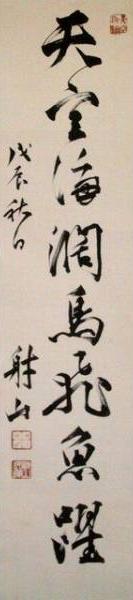 天空海濶鳥飛魚躍
戊辰秋日
射山